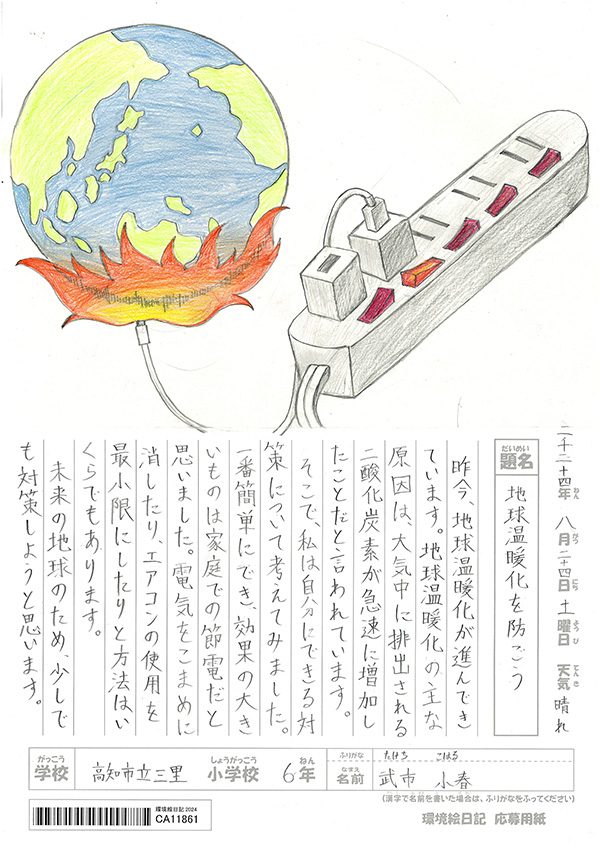 二千二十四年 八月二十四日 土曜日 天気 晴れ
ねん がつ にち ようび てんき
だいめい
題名 地球温暖化を防ごう
昨今、地球温暖化が進んでき
ています。地球温暖化の主な
原因は、大気中に排出される
二酸化炭素が急速に増加し
たことだと言われています。
そこで、私は自分にできる対
策について考えてみました。
一番簡単にでき、効果の大き
いものは家庭での節電だと
思いました。電気をこまめに
消したり、エアコンの使用を
最小限にしたりと方法はい
くらでもあります。
未来の地球のため、少しで
も対策しようと思います。
がっこう しょうがっこう ねん
学校 高知市立三里 小学校 6年
ふりがな たけち こはる
なまえ
名前 武市 小春
(漢字で名前を書いた場合は、ふりがなをふってください)
環境絵日記2024
CA11861
環境絵日記 応募用紙